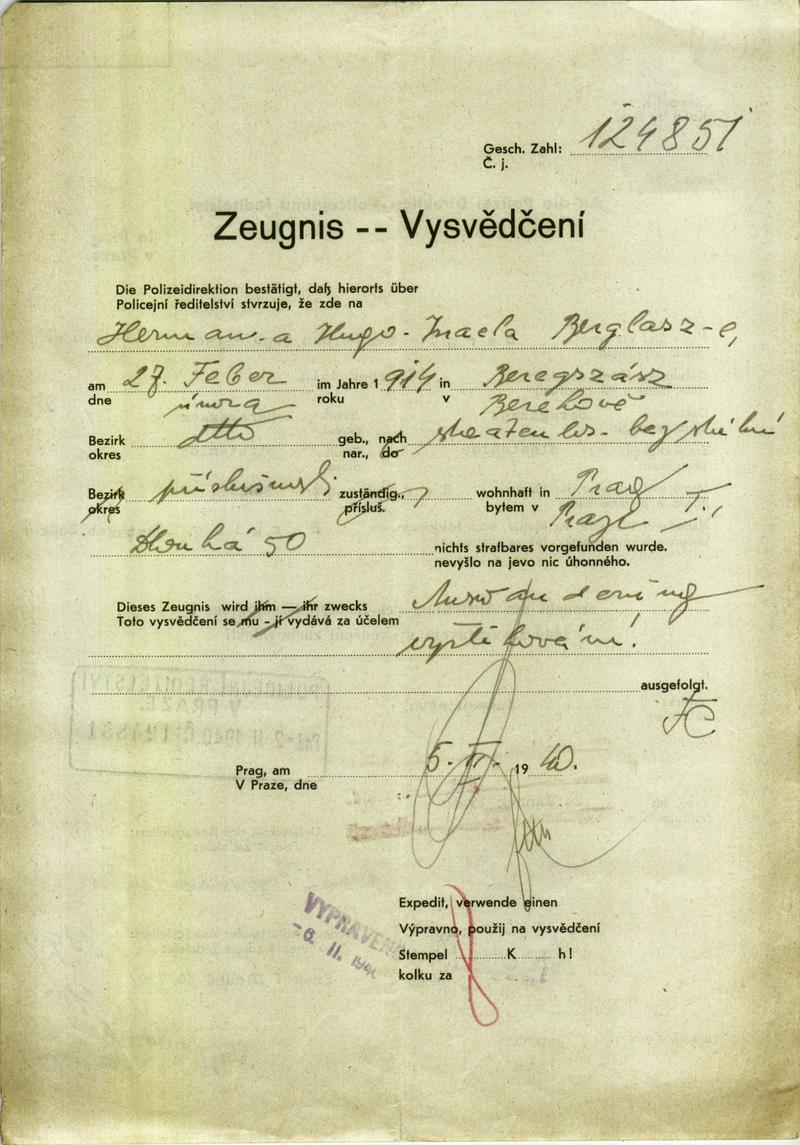 Gesch. Zahl: 124851
Č. j.
Zeugnis -- Vysvědčení
Die Polizeidirektion bestätigt, daß hierorts über
Policejní ředitelství stvrzuje, že zde na
Herman-a Hugo-Israela Berglasz-e,
am 27. Feber im Jahre 1 914 in Beregszász
dne února roku v Berehově
Bezirk dtto geb., nach
okres nar., do
Bezirk zuständig., wohnhaft in Prag
okres přísluš. bytem v Praze I.,
Dlouhá 50 nichts strafbares vorgefunden wurde.
nevyšlo na jevo nic úhonného.
Dieses Zeugnis wird ihm — ihr zwecks Auswanderung
Toto vysvědčení se mu - jí vydává za účelem
vystěhování.
ausgefolgt.
Prag, am 5. II. 19 40.
V Praze, dne
Expedit, verwende einen
Výpravno, použij na vysvědčení
Stempel K h!
kolku za
VYPRAVENO
-6. II. 1940